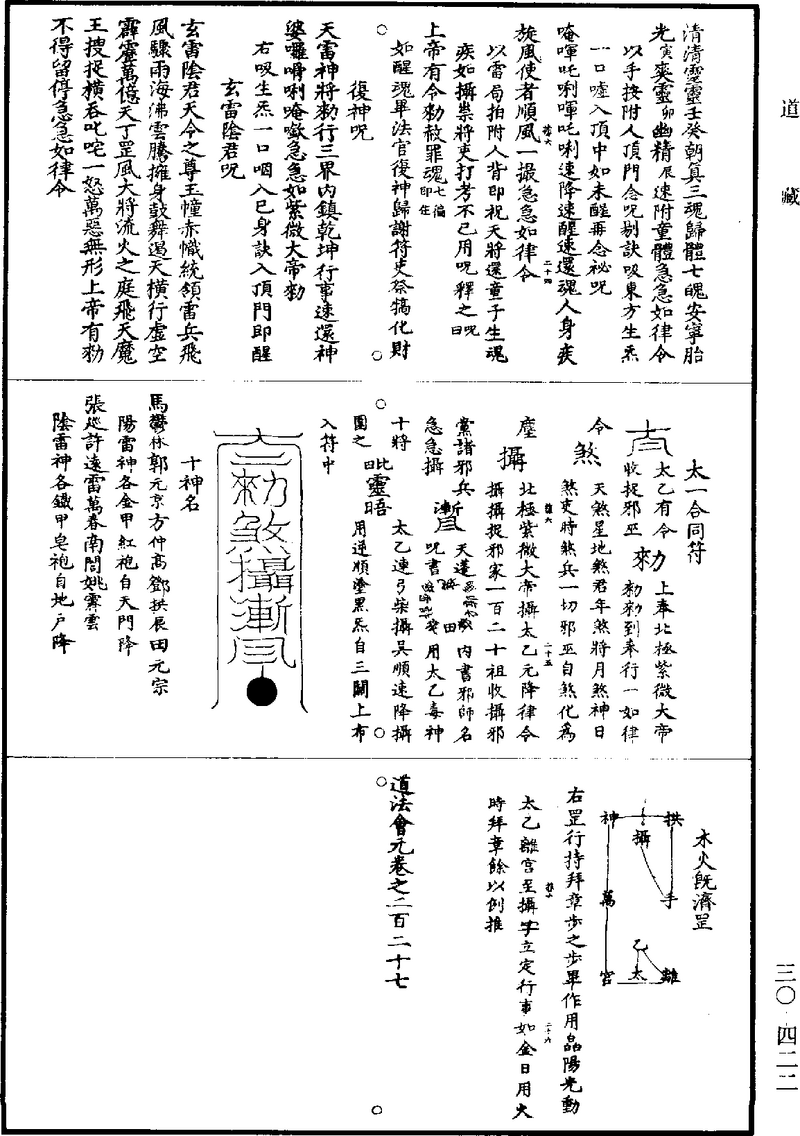 道藏
清清靈靈壬癸朝真三魂歸體七魄安寧胎
光寅爽靈卯幽精辰速附童體急急如律令
以手按附人頂門念呪剔訣吸東方生炁
一口噓入頂中如未醒再念祕呪
唵㖇吒唎㖇吒唎速降速醒速還魂人身疾
旋風使者順風一撮急急如律令
以雷局拍附人背即祝天將還童子生魂
疾如攝祟將吏打考不已用呪釋之呪曰
上帝有令勑赦罪魂七徧即住
如醒魂畢法官復神歸謝符吏祭犒化財
復神呪
天雷神將勑行三界內鎮乾坤行事速還神
婆囉唎唵急急如紫微大帝勑
右吸生炁一口咽入巳身訣入頂門即醒
玄雷陰君呪
玄雷陰君天令之尊玉幢赤幟統領雷兵飛
風驟雨海沸雲騰擁身鼓舞遏天橫行虛空
霹靂萬億天丁罡風大將流火之庭飛天魔
王搜捉橫吞叱咤一怒萬惡無形上帝有勑
不得留停急急如律令
太一合同符
太乙有令
收捉邪巫
勑
上奉北極紫微大帝
勑勑到奉行一如律
令
煞
天煞星地煞君年煞將月煞神日
煞吏時煞兵一切邪巫自煞化為
塵
攝
北極紫微大帝攝太乙元降律令
攝攝捉邪家一百二十祖收攝邪
黨諸邪兵
急急攝
天蓬
內書邪師名
呪書
用太乙毒神
十將
太乙連弓柴攝吳順速降攝
圍之
靈
用逆順塗黑炁自三關上布
入符中
勑煞攝
十神名
馬鬱林郭元京方仲高鄧拱辰田元宗
陽雷神各金甲紅袍自天門降
張廵許遠雷萬春南閭姚霽雲
陰雷神各鐵甲皂袍自地戶降
木火旣濟罡
拱
手
離
攝
乙
太
神
萬
宮
右罡行持拜章步之步畢作用晶陽光動
太乙離宮至攝字立定行事如金日用火
時拜章餘以例推
道法會元卷之二百二十七
三〇·四二二